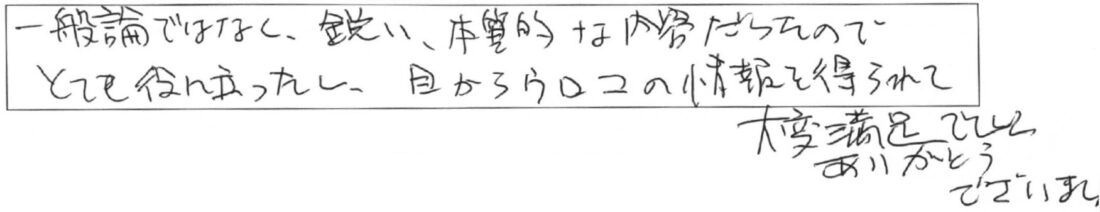 一般論ではなく、鋭い、本質的な内容だったので
とても役に立ったし、目からウロコの情報を得られて
大変満足でした
ありがとう
ございました